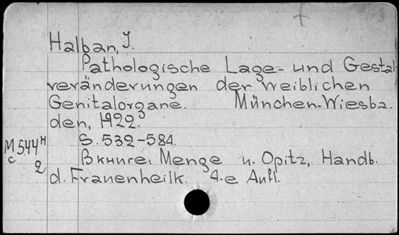 Halban, J.
Pathologische Lage- und Gestal
veränderungen der weiblichen
Genitalorgane. München-Wiesba.
den, 1922.
S. 532-584.
M 544н
с 2
В книге: Menge u. Opitz, Handb.
d. Frauenheilk. 4.e Aufl.